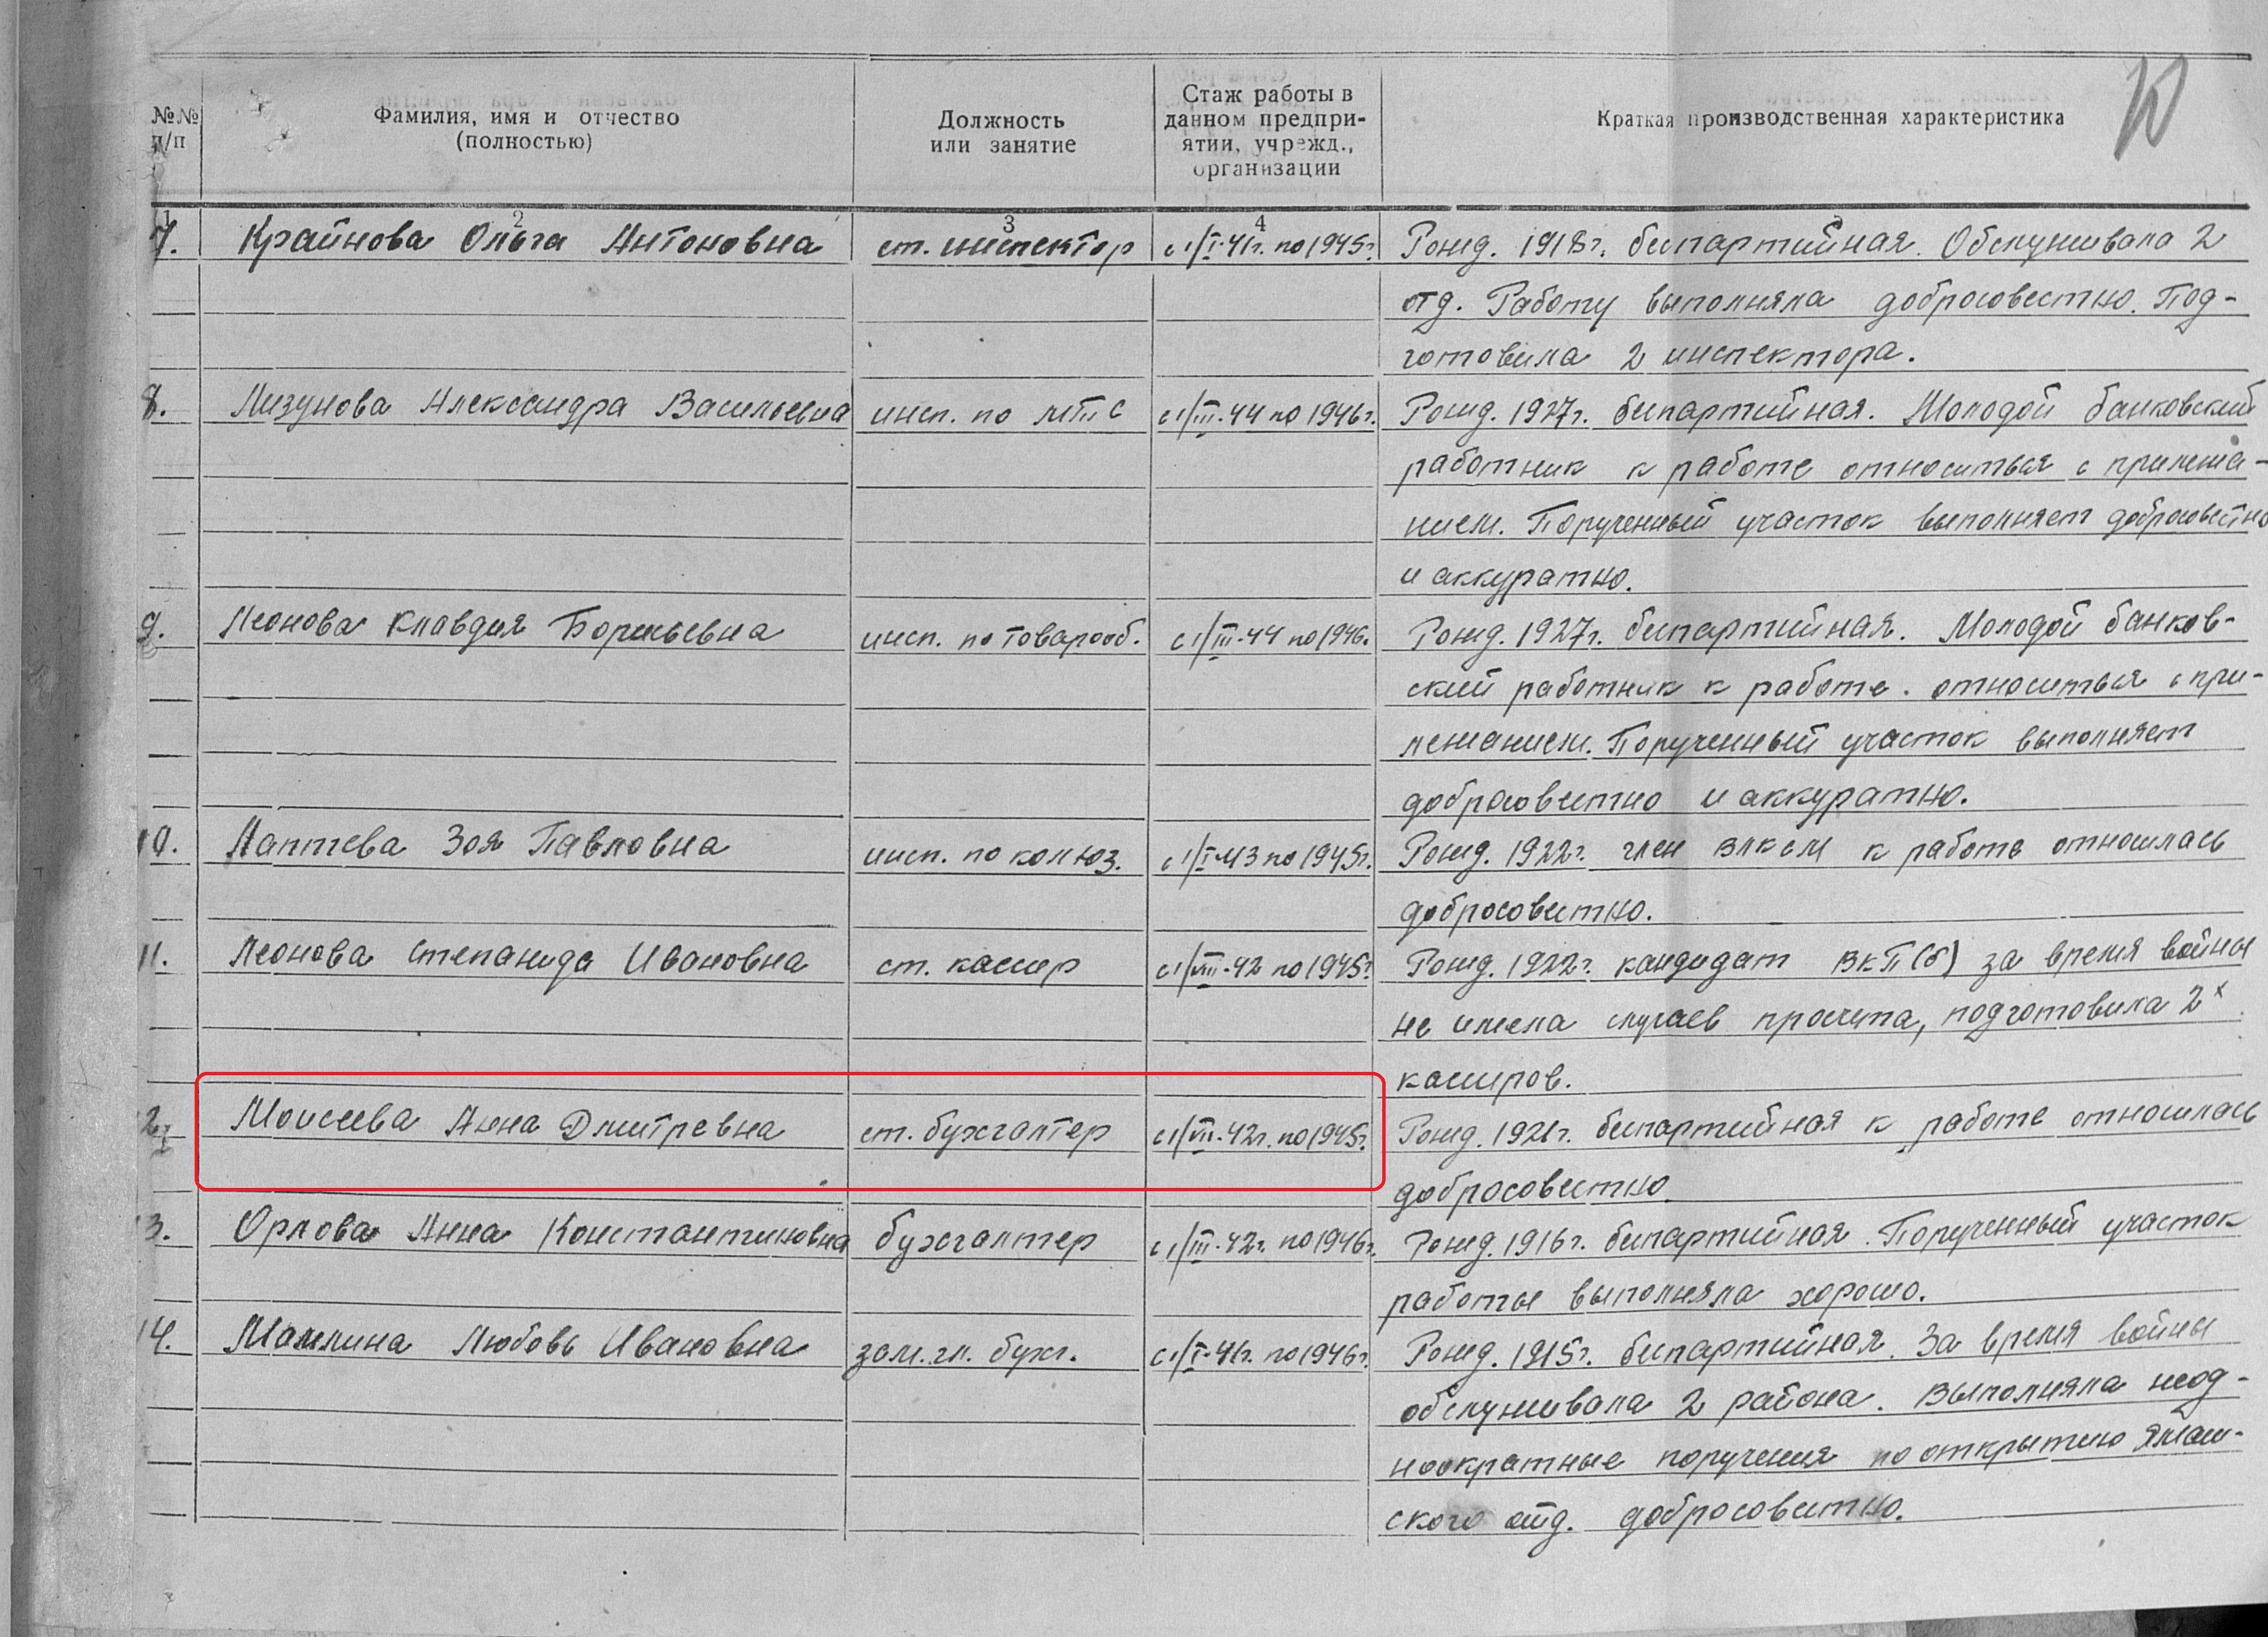 10
№№ п/п
Фамилия, имя и отчество
(полностью)
Должность
или занятие
Стаж работы в
данном предпри-
ятии, учрежд.,
организации
Краткая производственная характеристика
1 2 3 4
7. Крайнова Ольга Антоновна ст. инспектор с 1/I-41г. по 1945г. Рожд. 1918г. беспартийная. Обслуживала 2
отд. Работу выполняла добросовестно. Под-
готовила 2 инспектора.
8. Лизунова Александра Васильевна инсп. по МТС с 1/III-44 по 1946г. Рожд. 1927г. беспартийная. Молодой банковский
работник к работе относиться с прилежа-
нием. Порученный участок выполняет добросовестно
и аккуратно.
9. Леонова Клавдия Борисьевна инсп. по товарооб. с 1/III-44 по 1946г. Рожд. 1927г. беспартийная. Молодой банков-
ский работник к работе. относиться с при-
лежанием. Порученный участок выполняет
добросовестно и аккуратно.
10. Лаптева Зоя Павловна инсп. по колхоз. с 1/I-43 по 1945г. Рожд. 1922г. член ВЛКСМ к работе относилась
добросовестно.
11. Леонова Степанида Ивановна ст. кассир с 1/VIII-42 по 1945г. Рожд. 1922г. кандидат ВКП(б) за время войны
не имела случаев просчета, подготовила 2х
касиров.
12. Моисеева Анна Дмитревна ст. бухгалтер с 1/VII-42г. по 1945г. Рожд. 1921г. беспартийная к работе относилась
добросовестно.
13. Орлова Анна Константиновна бухгалтер с 1/III-42г. по 1946г. Рожд. 1916г. беспартийная. Порученный участок
работы выполняла хорошо.
14. Мамлина Любовь Ивановна зам. гл. бухг. с 1/I-41г. по 1946г. Рожд. 1915г. беспартийная. За время войны
обслуживала 2 района. Выполняла неод-
нократные поручения по открытию Ямаш-
ского отд. добросовестно.